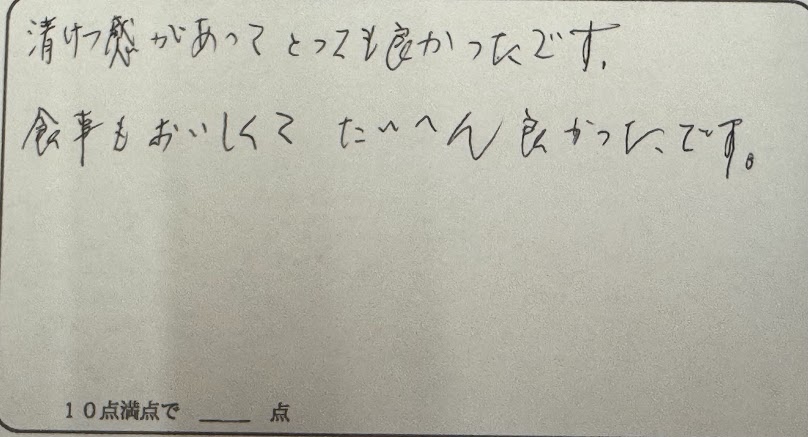 清けつ感があってとっても良かったです。
食事もおいしくて たいへん良かったです。
10点満点で ____ 点